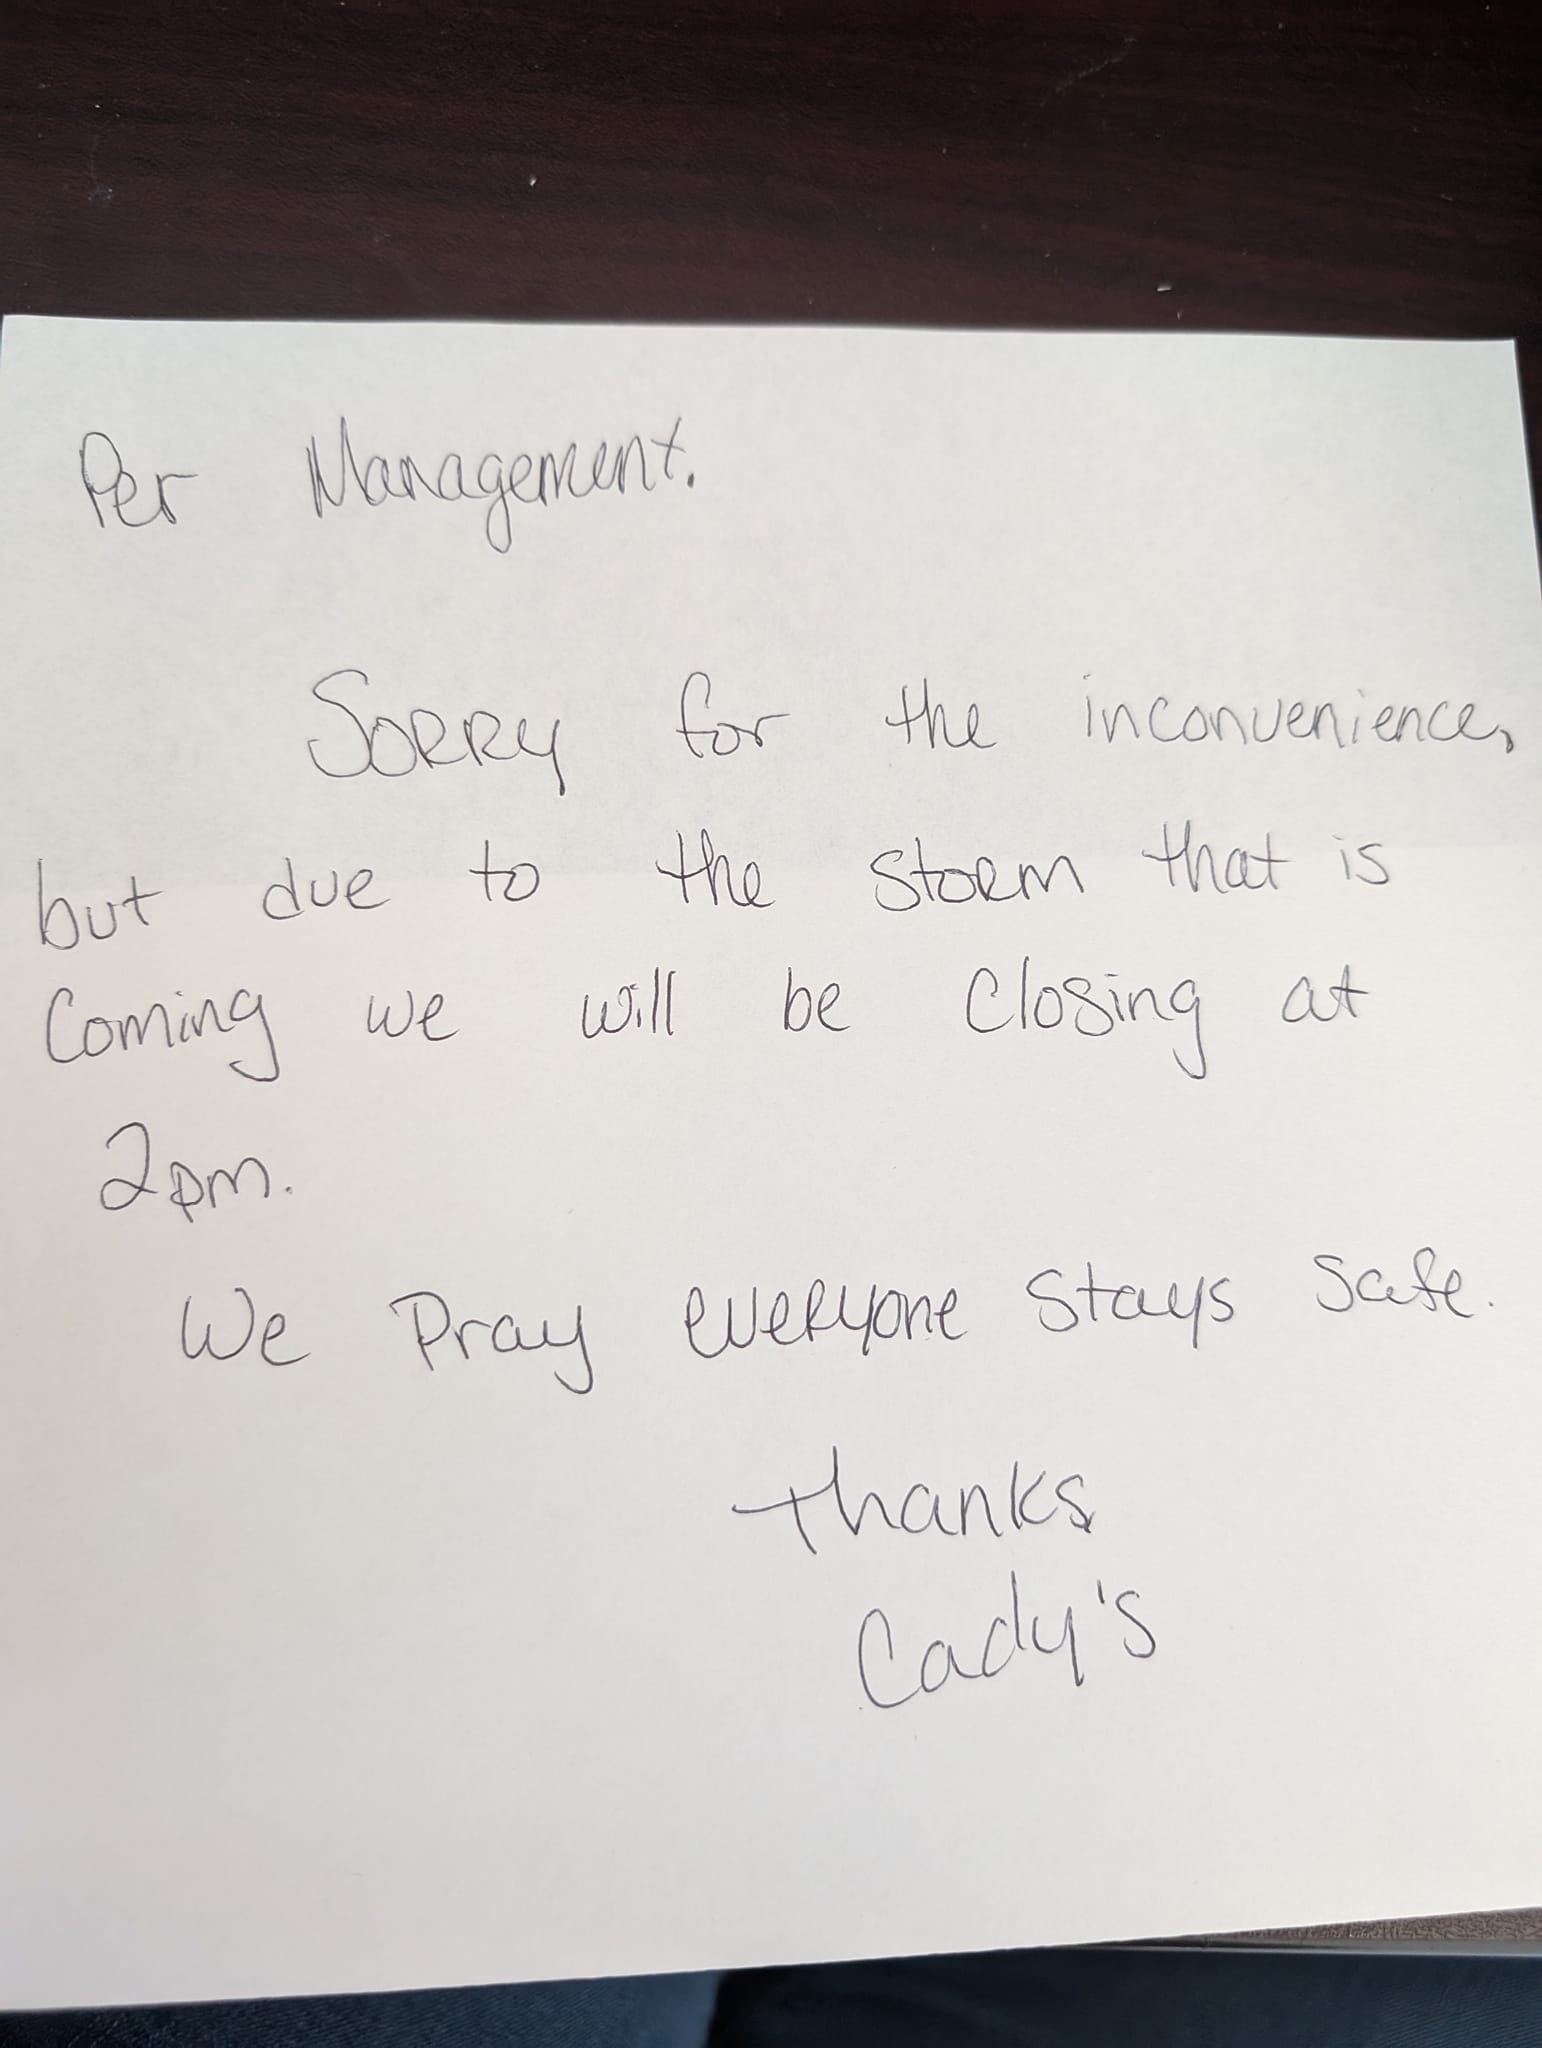 Per Management.
Sorry for the inconvenience,
but due to the storm that is
Coming we will be Closing at
2pm.
We Pray everyone stays safe.
thanks
Cady's